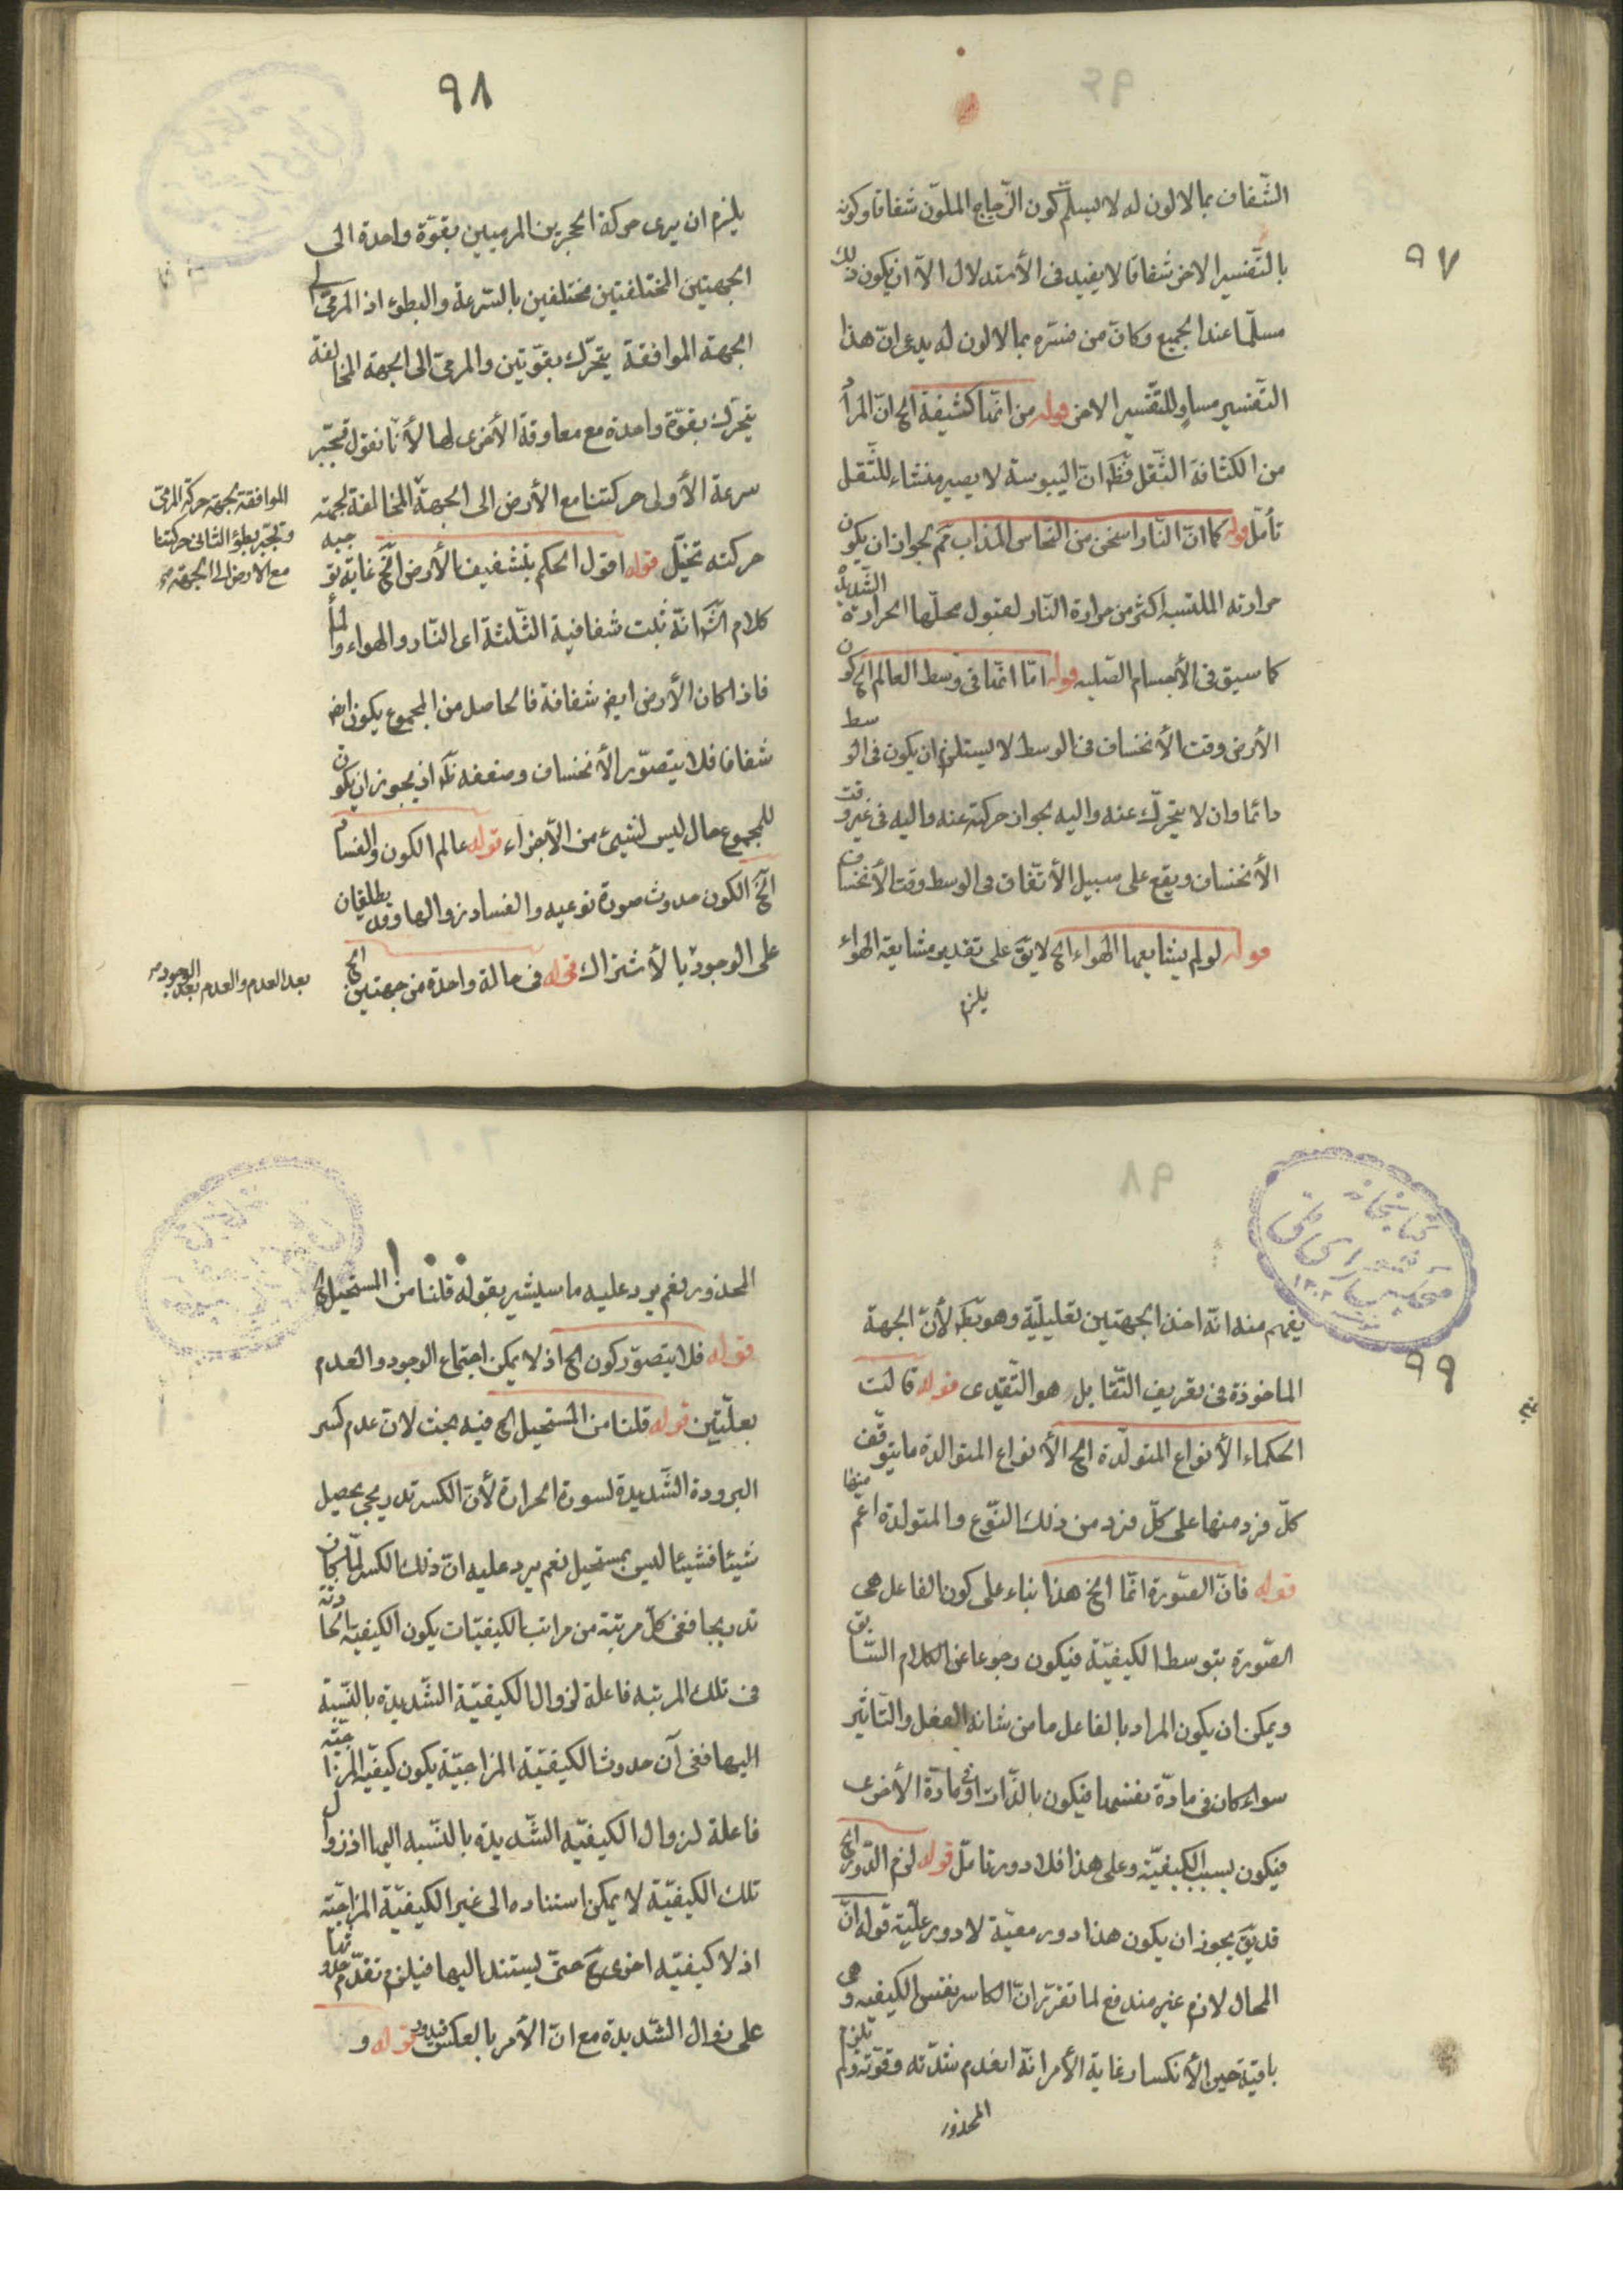 ٩٧
الشّفاف بما لا لون له لا يسلّم كون الزّجاج الملوّن شفافا وكونه
بالتّفسير الاخر شفافا لا يفيد فى الأستدلال الاّ ان يكون ذلك
مسلّما عند الجميع وكانّ من فسّره بما لا لون له يدعى انّ هذا
التّفسير مساوٍ للتّفسير الاخر قوله من انّها كثيفة الخ انّ المراد
من الكثافة الثّقل فظَ انّ اليبوسة لا يصير منشاء للثّقل
تأمّل قوله كما انّ النّار اسخن من النّحاس المذاب تم لجواز ان يكون
حرارته المكتسبه اكثر من حرارة النّار لقبول محلّها الحرارة الشّديدة
كما سبق فى الأجسام الصّلبه قوله امّا انّها فى وسط العالم الخ كون
الأرض وقت الأنخساف فى الوسط لا يستلزم ان يكون فى الوسط
دائما وان لا يتحرّك عنه واليه لجواز حركته عنه واليه فى غير وقت
الأنخساف ويقع على سبيل الأتّفاق فى الوسط وقت الأنخساف
قوله لو لم يشايعها الهواء الخ لا يقَ على تقدير مشايعة الهواء
يلزم
٩٨
يلزم ان يرى حركة الحجرين المرميين بقوّة واحدة الى
الجهتين المختلفتين مختلفين بالسّرعة والبطؤ اذ المرمىّ الى
الجهة الموافقة يتحرّك بقوّتين والمرمىّ الى الجهة المخالفة
يتحرّك بقوّة واحدة مع معاوقة الأخرى لها لأنّا نقول تجبّر
سرعة الأولى حركتنا مع الأرض الى الجهة المخالفة لجهة
حركته تخيّل قوله اقول الحكم بتشفيف الأرض الخَ غاية توجيه
كلام الشَ انّه ثبت شفافية الثّلثة اى النّار والهواء والماء
فاذا كان الأرض ايضَ شفافة فالحاصل من المجموع يكون ايضَ
شفافا فلا يتصوّر الأنخساف وضعفه ظَ اذ يجوز ان يكون
للمجموع حال ليس لشيئ من الأجزاء قوله عالم الكون والفساد
الخَ الكون حدوث صورة نوعيه والفساد زوالها وقد يطلقان
على الوجود بالأشتراك قوله فى حالة واحدة من جهتين الخ
الموافقة لجهة حركة المرمىّ
وتجبّر بطؤ الثّانى حركتنا
مع الارض الى الجهة
بعد العدم والعدم بعد الوجود
٩٩
يفهم منه انّه اخذ الجهتين تعليليّة وهو بَط لأنّ الجهة
الماخوذة فى تعريف التّقابل هو التّقيدى قوله قالت
الحكماء الأنواع المتولّدة الخ الأنواع المتوالدة ما يتوقّف
كلّ فرد منها على كلّ فرد من ذلك النّوع والمتولدة اعم منها
قوله فانّ الصّورة انّما الخ هذا بناء على كون الفاعل هى
الصّورة بتوسط الكيفيّة فيكون رجوعا عن الكلام السّابق
ويمكن ان يكون المراد بالفاعل ما من شانه الفعل والتّأثير
سواء كان فى مادّة نفسها فيكون بالذّات او فى مادّة الأخرى
فيكون بسبب الكيفيّة وعلى هذا فلا دور تامّل قوله لزم الدّور الخ
قد يقَ يجوز ان يكون هذا دور معيّة لا دور علّية قوله انّ
المحال لازم غير مندفع لما تقرّر انّ الكاسر نفس الكيفيه وهى
باقية حين الأنكسار غاية الأمر انّه انعدم شدّته وقوّته ولم يلزم
المحذور
١٠٠
المحذور نعم يرد عليه ما سيشير بقوله قلنا من المستحيل الخ
قوله فلا يتصوّر كون الخ اذ لا يمكن اجتماع الوجود والعدم
بعلّتين قوله قلنا من المستحيل الخ فيه بحث لانّ عدم كسر
البرودة الشّديدة لسورة الحرارة لأنّ الكسر تدريجى يحصل
شيئا فشيئا ليس بمستحيل نعم يرد عليه انّ ذلك الكسر لمّا كان
تدريجا ففى كلّ مرتبة من مراتب الكيفيّات يكون الكيفيّة الحادثة
فى تلك المرتبه فاعلة لزوال الكيفيّة الشّديدة بالنّسبة
اليها ففى آن حدوث الكيفيّة المزاجيّة يكون كيفيّة المزاجيّة
فاعلة لزوال الكيفيّه الشّديدة بالنّسبه اليها اذ زوال
تلك الكيفيّة لا يمكن استناده الى غير الكيفيّة المزاجيّة
اذ لا كيفيّه اخرى حَ حتّى يستند اليها فيلزم تقدّم حدوثها
على زوال الشّديدة مع انّ الأمر بالعكس فيدور قوله و
كتابخانه
مجلس شورای ملی